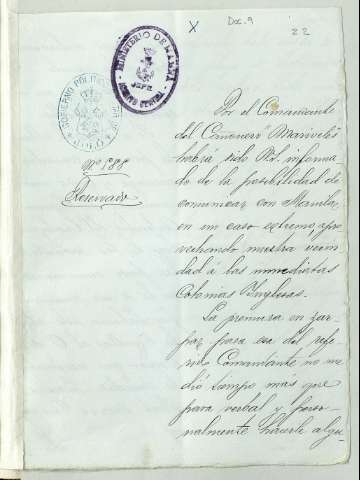 X
Doc. 9
22
MINISTERIO DE MARINA
JEFE
GOBIERNO POLITICO
Nº 188
Reservado
Por el Comandante
del Cañonero "Mariveles"
habrá sido V.S. informa-
do de la posibilidad de
comunicar con Manila,
en un caso extremo, apro-
vechando nuestra vecin-
dad á las inmediatas
Colonias Inglesas.
La premura en zar-
par para esa del refe-
rido Comandante no me
dió tiempo mas que
para verbal y perso-
nalmente hacerle algu-